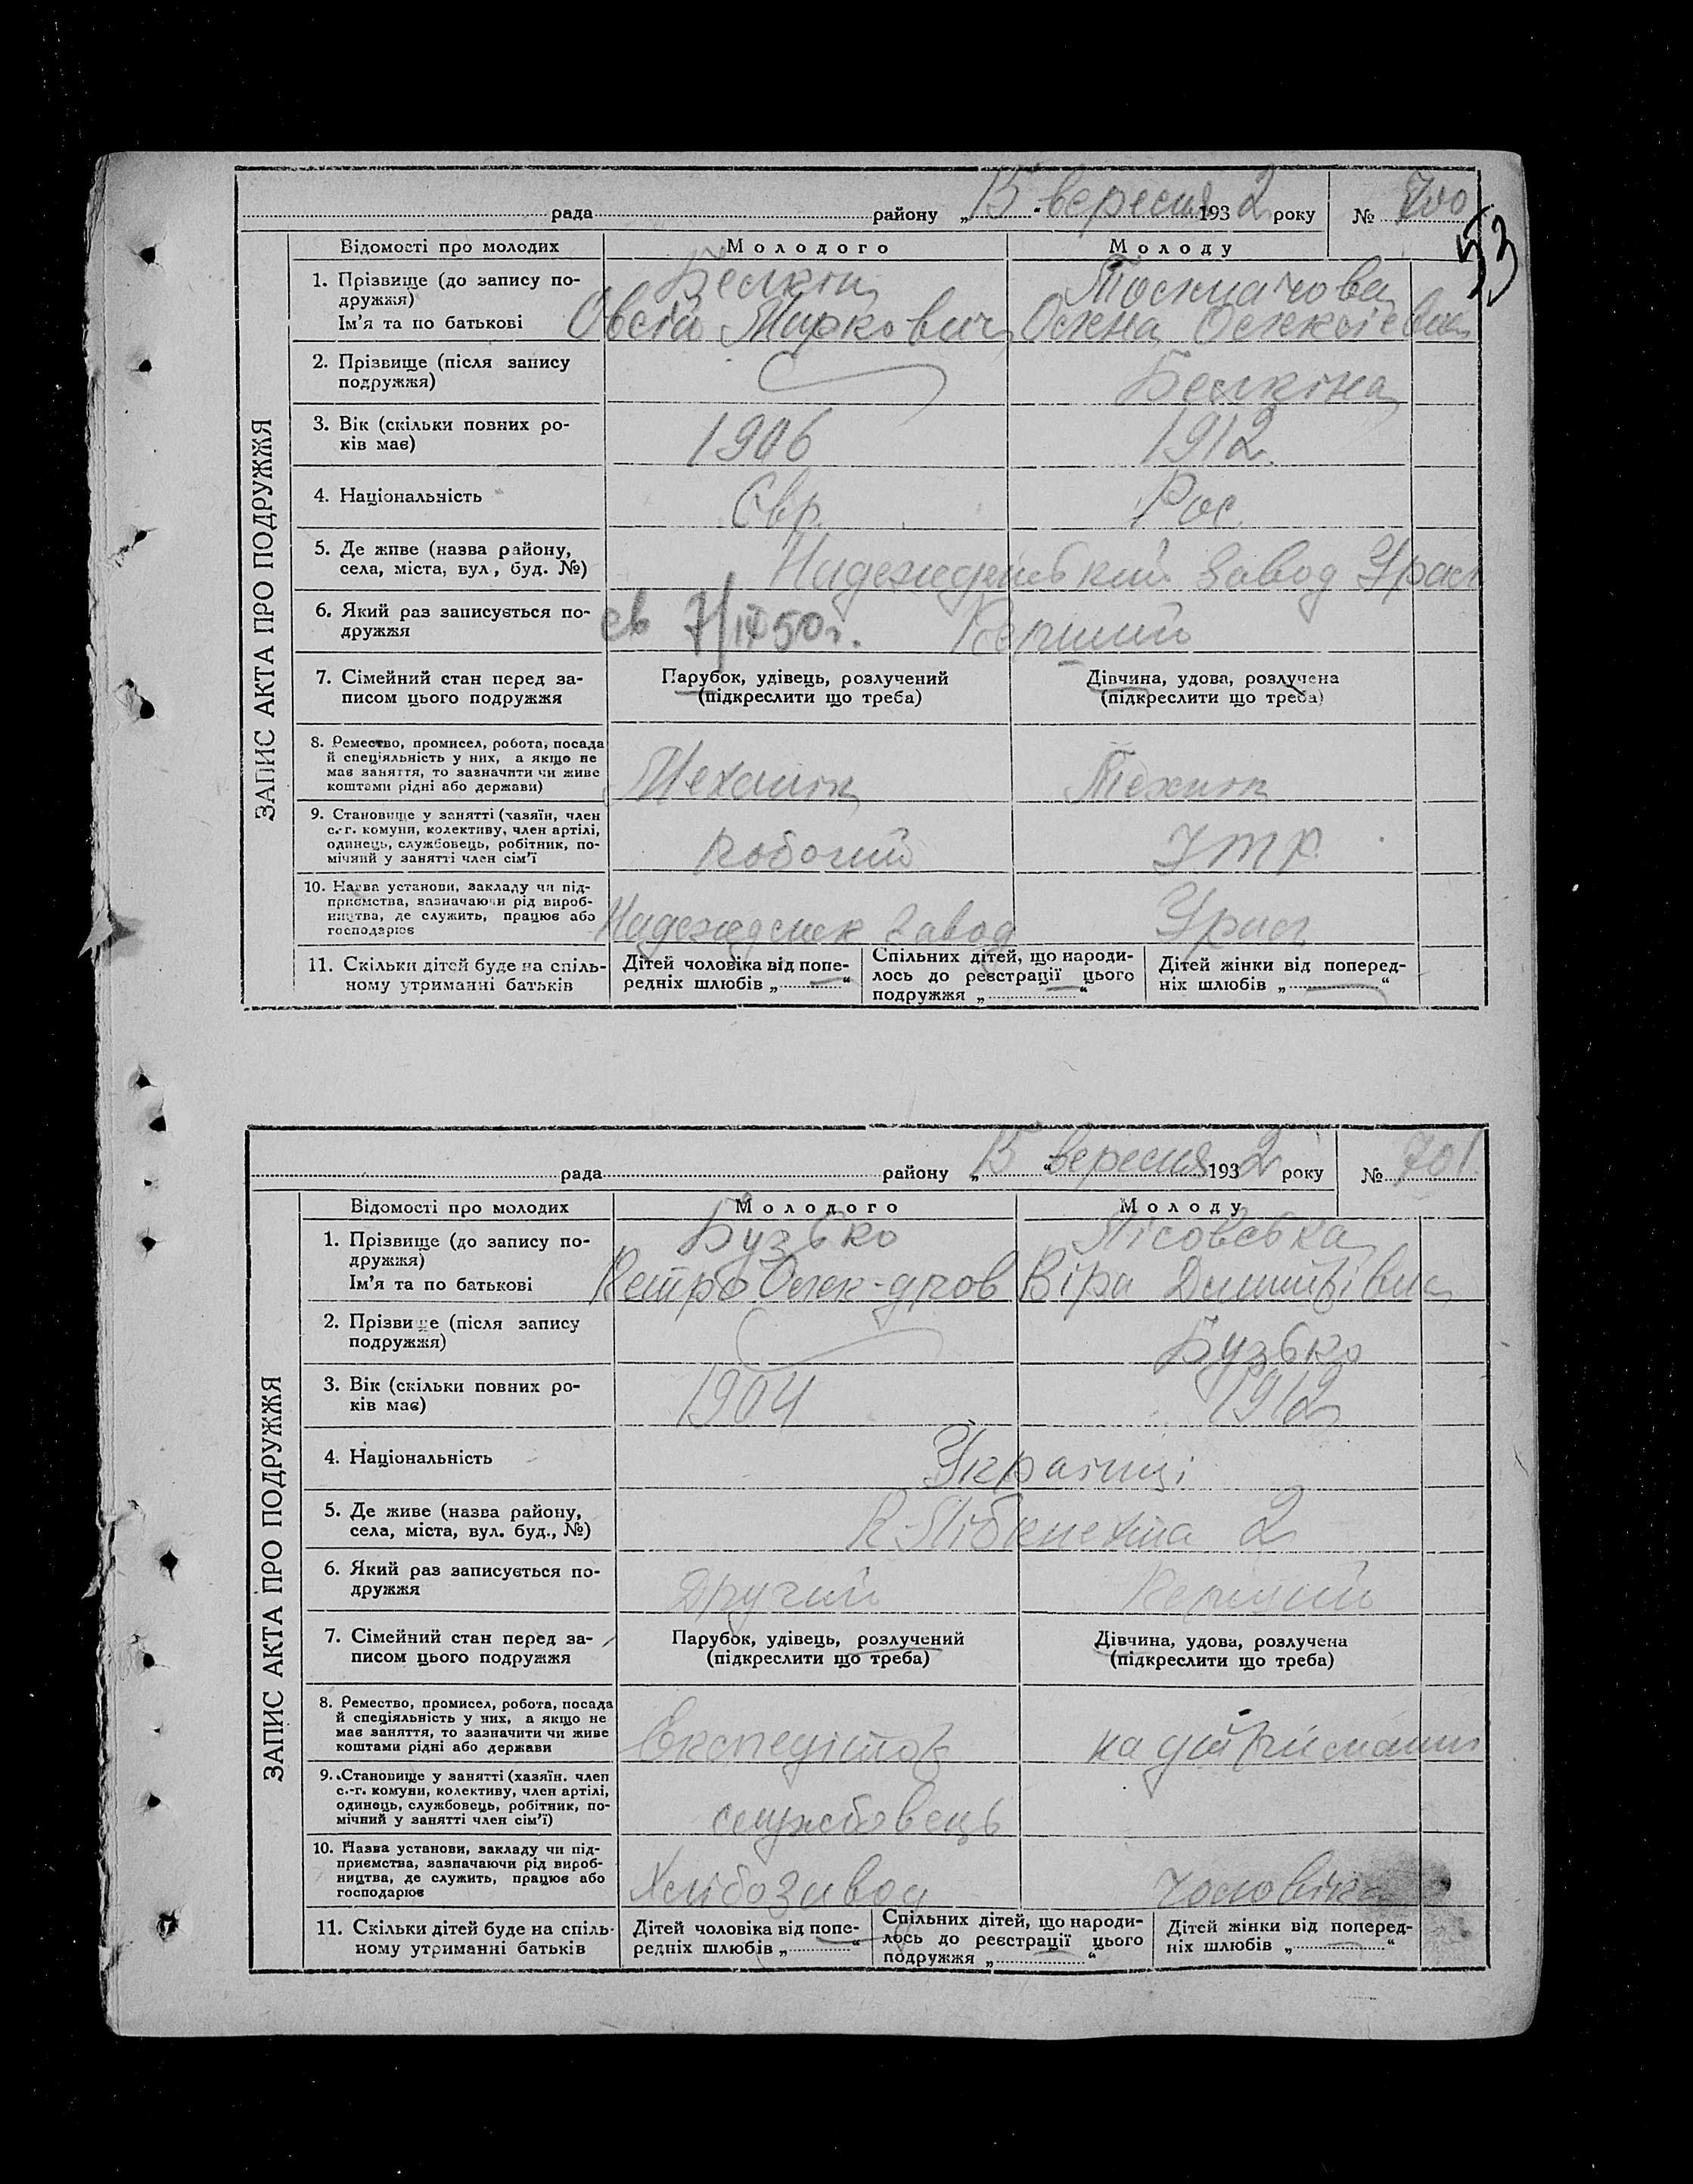 рада района „15“ вересня 1932 року № 700
53
ЗАПИС АКТА ПРО ПОДРУЖЖЯ
Відомості про молодих Молодого Молоду
1. Прізвище (до запису по-
дружжя)
Ім'я та по батькові
Белкін
Овсій Маркович
Толмачова
2. Прізвище (після запису
подружжя)
Белкіна
3. Вік (скільки повних ро-
ків має)
1906 1912
4. Національність Євр. Рос.
5. Де живе (назва району,
села, міста, вул., буд. №)
завод
6. Який раз записується по-
дружжя
св 7/IV 50 г. Перший
7. Сімейний стан перед за-
писом цього подружжя
Парубок, удівець, розлучений
(підкреслити що треба)
Дівчина, удова, розлучена
(підкреслити що треба)
8. Ремество, промисел, робота, посада
й спеціяльність у них, а якщо не
має заняття, то зазначити чи живе
коштами рідні або держави)
Механік Технік
9. Становище у занятті (хазяїн, член
с.-г. комуни, колективу, член артілі,
одинець, службовець, робітник, по-
мічний у занятті член сім'ї
Робочий ІТР.
10. Назва установи, закладу чи під-
приємства, зазначаючи рід вироб-
ництва, де служить, працює або
господарює
завод
11. Скільки дітей буде на спіль-
ному утриманні батьків
Дітей чоловіка від попе-
редніх шлюбів „ “
Спільних дітей, що народи-
лось до реєстрації цього
подружжя „ “
Дітей жінки від поперед-
ніх шлюбів „ “
рада району „15“ вересня 1932 року № 701
ЗАПИС АКТА ПРО ПОДРУЖЖЯ
Відомості про молодих Молодого Молоду
1. Прізвище (до запису по-
дружжя)
Ім'я та по батькові
Бузько
Петро Олек-дров
Лісовська
Віра Дмитрівна
2. Прізвище (після запису
подружжя)
Бузько
3. Вік (скільки повних ро-
ків має)
1904 1912
4. Національність Українці
5. Де живе (назва району,
села, міста, вул. буд., №)
К-Лібкнехта 2
6. Який раз записується по-
дружжя
Другий Перший
7. Сімейний стан перед за-
писом цього подружжя
Парубок, удівець, розлучений
(підкреслити що треба)
Дівчина, удова, розлучена
(підкреслити що треба)
8. Ремество, промисел, робота, посада
й спеціяльність у них, а якщо не
має заняття, то зазначити чи живе
коштами рідні або держави
Експедітор на утриманні
9. Становище у занятті (хазяїн. член
с.-г. комуни, колективу, член артілі,
одинець, службовець, робітник, по-
мічний у занятті член сім'ї)
службовець
10. Назва установи, закладу чи під-
приємства, зазначаючи рід вироб-
ництва, де служить, працює або
господарює
Хлібозавод чоловіка
11. Скільки дітей буде на спіль-
ному утриманні батьків
Дітей чоловіка від попе-
редніх шлюбів „ “
Спільних дітей, що народи-
лось до реєстрації цього
подружжя „ “
Дітей жінки від поперед-
ніх шлюбів „ “